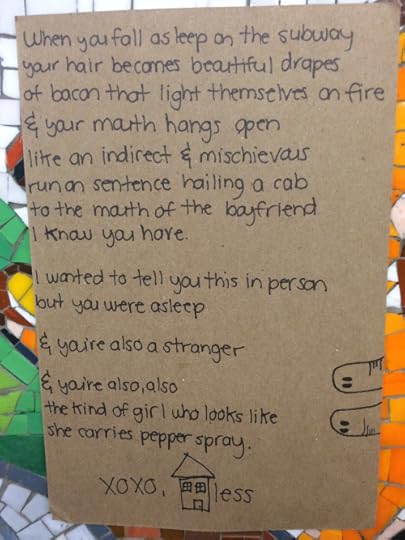 When you fall asleep on the subway
your hair becomes beautiful drapes
of bacon that light themselves on fire
& your mouth hangs open
like an indirect & mischievous
run on sentence hailing a cab
to the mouth of the boyfriend
I know you have.
I wanted to tell you this in person
but you were asleep
& you're also a stranger
& you're also, also
the kind of girl who looks like
she carries pepper spray.
XOXO, less